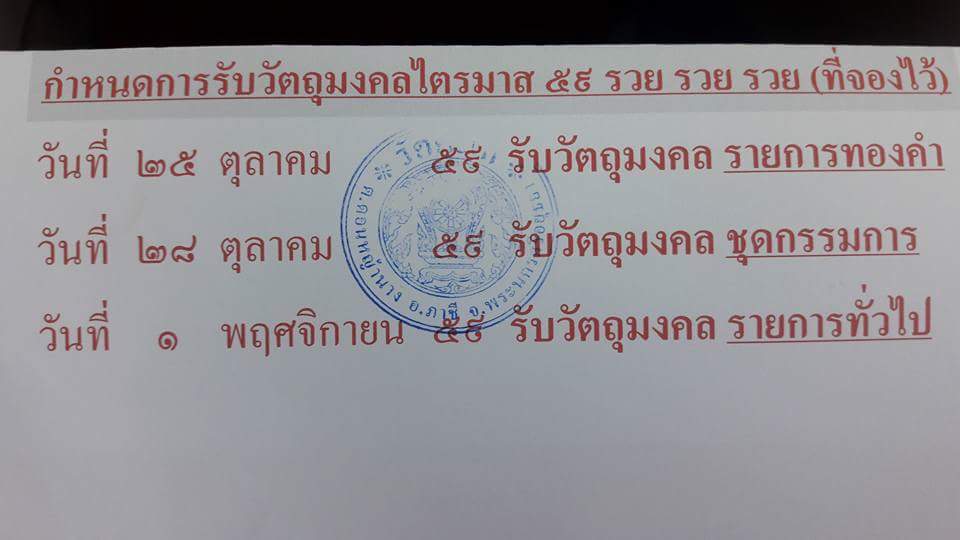 กำหนดการรับวัตถุมงคลไตรมาส ๕๙ รวย รวย รวย (ที่จองไว้)
วันที่ ๒๕ ตุลาคม ๕๙ รับวัตถุมงคล รายการทองคำ
วันที่ ๒๘ ตุลาคม ๕๙ รับวัตถุมงคล ชุดกรรมการ
วันที่ ๑ พฤศจิกายน ๕๙ รับวัตถุมงคล รายการทั่วไป
ต.ดอนหญ้านาง อ.ภาชี จ.พระนคร